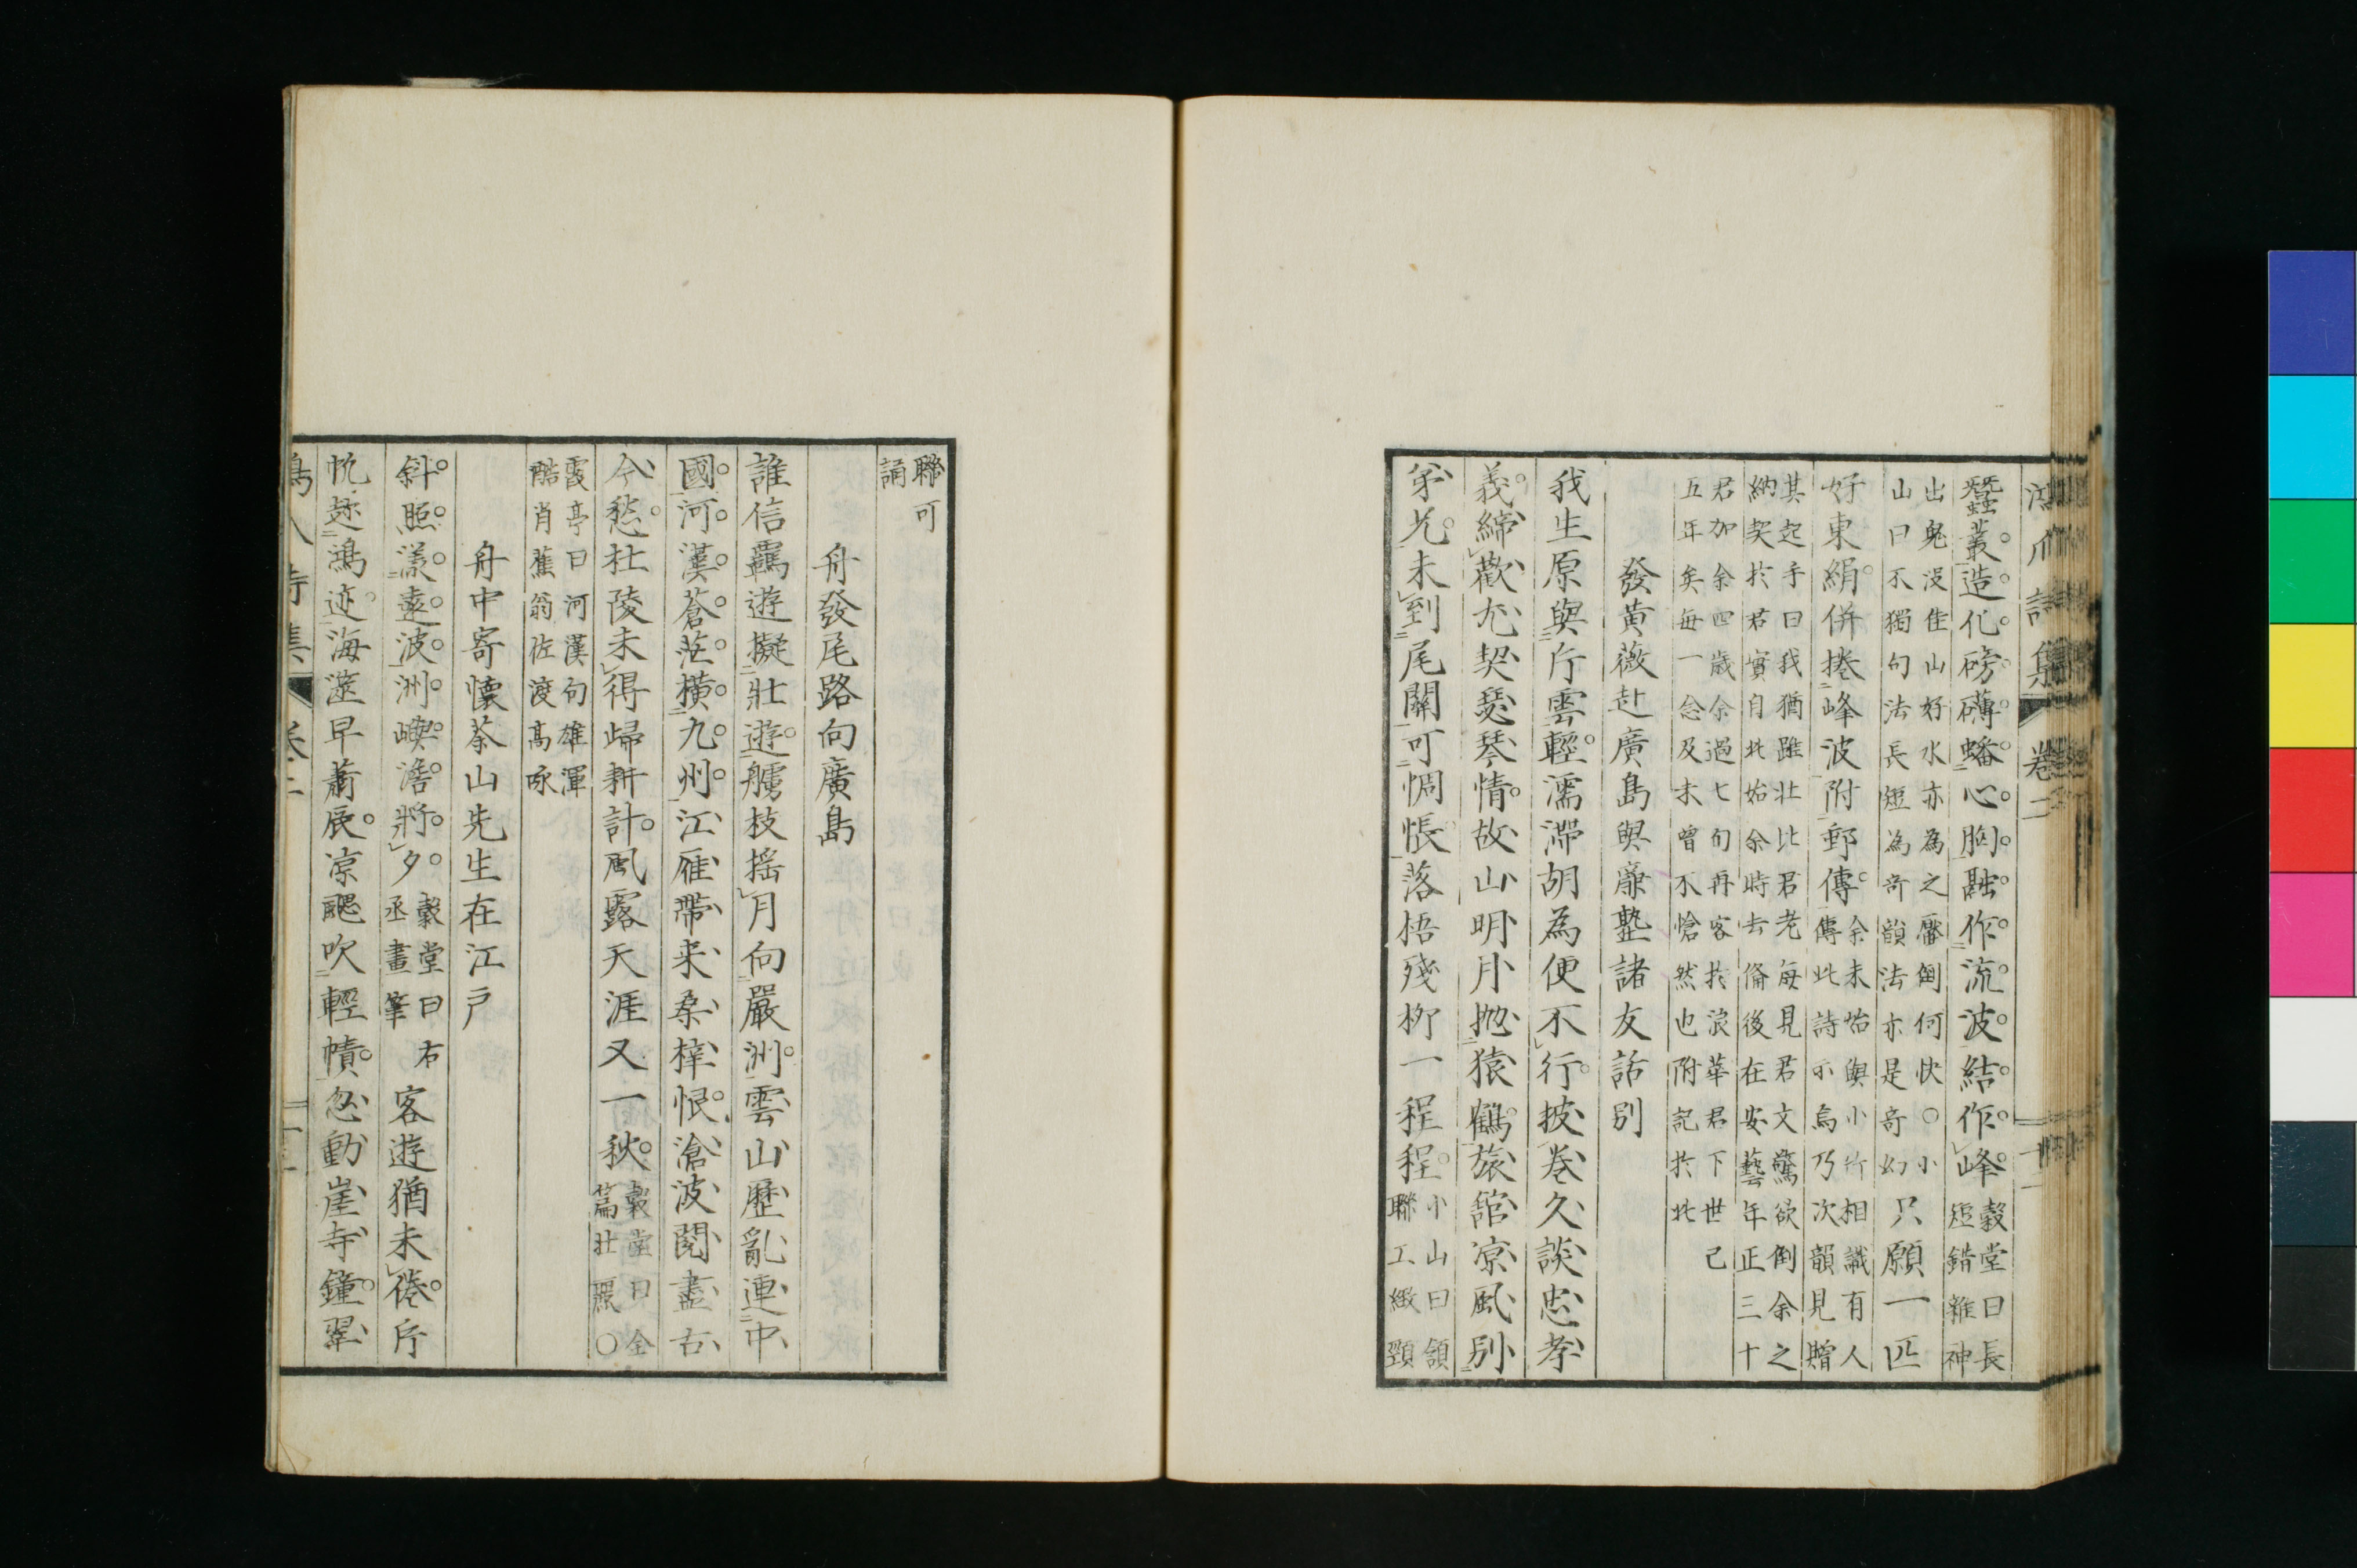 鴻爪詩集 卷二 十一
蠶叢造化磅礴蟠心胸融作流波結作峰穀堂曰長
短錯雜神
出鬼没佳山好水亦為之壓倒何快○小
山曰不獨句法長短為奇韻法亦是奇幻
只願一匹
好東絹併捲峰波附郵傳余未始與小竹相識有人
傳此詩示烏乃次韻見贈
其起手曰我猶雖壯比君老每見君文驚欲倒余之
納契於君實自此始余時去脩後在安藝年正三十
君加余四歲余過七旬再客於浪華君下世已
五年矣每一念及未曾不愴然也附記於此
發黃薇赴廣島與廉塾諸友話別
我生原與片雲輕濡滯胡為便不行披卷久談忠孝
義締歡尤契瑟琴情故山明月抛猿鶴旅館凉風別
弟兄未到尾關可惆悵落梧殘柳一程程小山曰頷
聯工緻頸
聯可
誦
舟發尾路向廣島
誰信羈遊擬壯遊艣枝搖月向嚴洲雲山歷亂連中
國河漢蒼茫橫九州江雁帶来桑梓恨滄波閲盡古
今愁杜陵未得歸耕計風露天涯又一秋穀堂曰全
篇壯麗○
霞亭曰河漢句雄渾
酷肖蕉翁佐渡高咏
舟中寄懷茶山先生在江戸
斜照漾遠波洲嶼澹將夕穀堂曰右
丞畫筆
客遊猶未倦斥
帆趁鴻迹海滋早肅辰凉颸吹輕幘忽動崖寺鐘翠